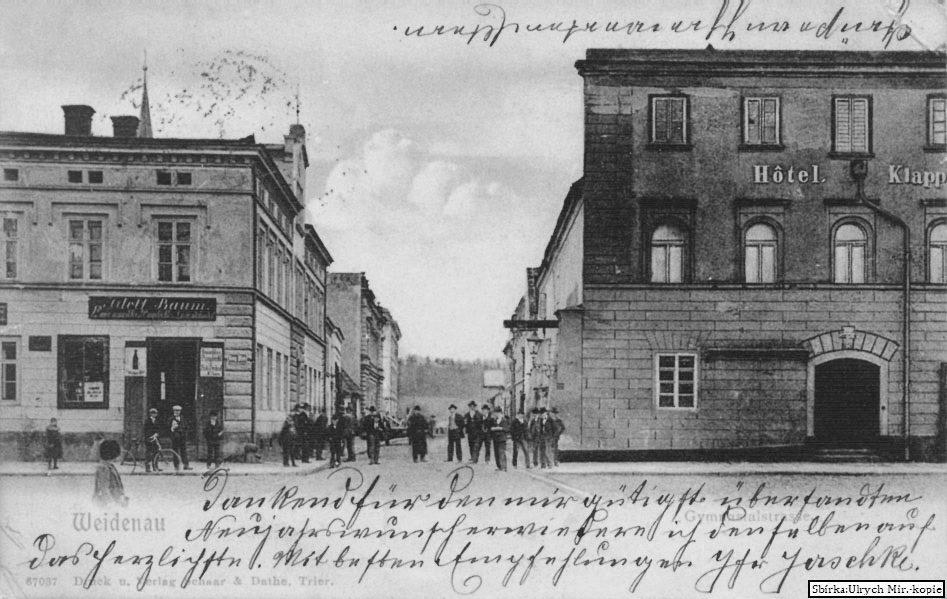 Hôtel. Klapp
Adolf Baum
Dankend für den mir gütigst übersandten
Weidenau
Gymnasialstrasse
Neujahrswunsch erwiedere ich denselben auf
das herzlichste. Mit besten Empfehlungen Ihr Jaschke.
67037 Druck u. Verlag Schaar & Dathe, Trier.
Sbírka:Ulrych Mir.-kopie